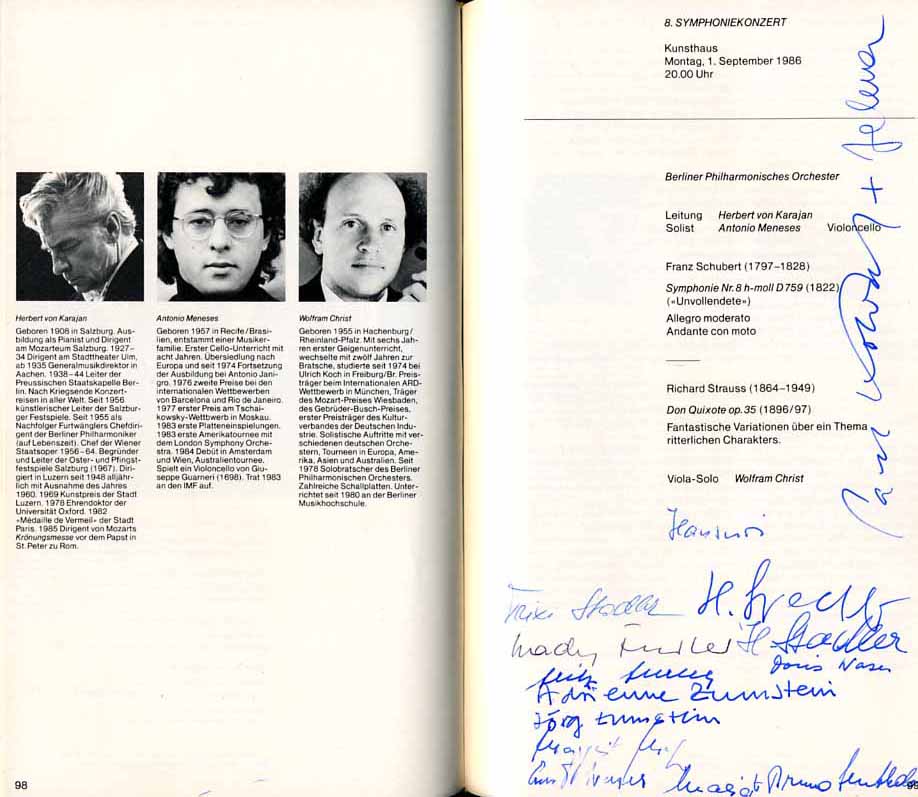 Herbert von Karajan
Geboren 1908 in Salzburg. Aus-
bildung als Pianist und Dirigent
am Mozarteum Salzburg. 1927–
34 Dirigent am Stadttheater Ulm,
ab 1935 Generalmusikdirektor in
Aachen. 1938–44 Leiter der
Preussischen Staatskapelle Ber-
lin. Nach Kriegsende Konzert-
reisen in aller Welt. Seit 1956
künstlerischer Leiter der Salzbur-
ger Festspiele. Seit 1955 als
Nachfolger Furtwänglers Chefdiri-
gent der Berliner Philharmoniker
(auf Lebenszeit). Chef der Wiener
Staatsoper 1956–64. Begründer
und Leiter der Oster- und Pfingst-
festspiele Salzburg (1967). Diri-
giert in Luzern seit 1948 alljähr-
lich mit Ausnahme des Jahres
1960. 1969 Kunstpreis der Stadt
Luzern. 1978 Ehrendoktor der
Universität Oxford. 1982
«Médaille de Vermeil» der Stadt
Paris. 1985 Dirigent von Mozarts
Krönungsmesse vor dem Papst in
St. Peter zu Rom.
Antonio Meneses
Geboren 1957 in Recife/Brasi-
lien, entstammt einer Musiker-
familie. Erster Cello-Unterricht mit
acht Jahren. Übersiedlung nach
Europa und seit 1974 Fortsetzung
der Ausbildung bei Antonio Jani-
gro. 1976 zweite Preise bei den
internationalen Wettbewerben
von Barcelona und Rio de Janeiro.
1977 erster Preis am Tschai-
kowsky-Wettbewerb in Moskau.
1983 erste Platteneinspielungen.
1983 erste Amerikatournee mit
dem London Symphony Orche-
stra. 1984 Debüt in Amsterdam
und Wien, Australientournee.
Spielt ein Violoncello von Giu-
seppe Guarneri (1698). Trat 1983
an den IMF auf.
Wolfram Christ
Geboren 1955 in Hachenburg/
Rheinland-Pfalz. Mit sechs Jah-
ren erster Geigenunterricht,
wechselte mit zwölf Jahren zur
Bratsche, studierte seit 1974 bei
Ulrich Koch in Freiburg/Br. Preis-
träger beim Internationalen ARD-
Wettbewerb in München, Träger
des Mozart-Preises Wiesbaden,
des Gebrüder-Busch-Preises,
erster Preisträger des Kultur-
verbandes der Deutschen Indu-
strie. Solistische Auftritte mit ver-
schiedenen deutschen Orche-
stern, Tourneen in Europa, Ame-
rika, Asien und Australien. Seit
1978 Solobratscher des Berliner
Philharmonischen Orchesters.
Zahlreiche Schallplatten. Unter-
richtet seit 1980 an der Berliner
Musikhochschule.
98
8. SYMPHONIEKONZERT
Kunsthaus
Montag, 1. September 1986
20.00 Uhr
Berliner Philharmonisches Orchester
Leitung Herbert von Karajan
Solist Antonio Meneses Violoncello
Franz Schubert (1797–1828)
Symphonie Nr. 8 h-moll D 759 (1822)
(«Unvollendete»)
Allegro moderato
Andante con moto
Richard Strauss (1864–1949)
Don Quixote op. 35 (1896/97)
Fantastische Variationen über ein Thema
ritterlichen Charakters.
Viola-Solo Wolfram Christ
+ Helena
Stadler H.
Mady H Stadler
Doris
Adrienne Zumstein
Jörg Zumstein
Margrit
Bruno